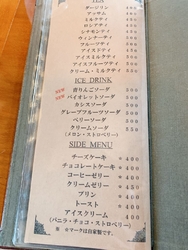 TEA
ダージリン 400
アッサム 400
ミルクティ 400
ロシアティ 450
シナモンティ 450
ウィンナーティ
フルーツティ
アイスティ
アイスミルクティ
アイスフルーツティ
クリーム・ミルクティ
ICE DRINK
青りんごソーダ 500
バイオレットソーダ 500
カシスソーダ 500
グレープフルーツソーダ 500
ベリーソーダ 500
クリームソーダ 550
(メロン・ストロベリー)
SIDE MENU
チーズケーキ ★400
チョコレートケーキ ★400
コーヒーゼリー ★400
クリームゼリー
プリン ★400
トースト ★400
アイスクリーム 400
(バニラ・チョコ・ストロベリー)
★マークは自家製です。